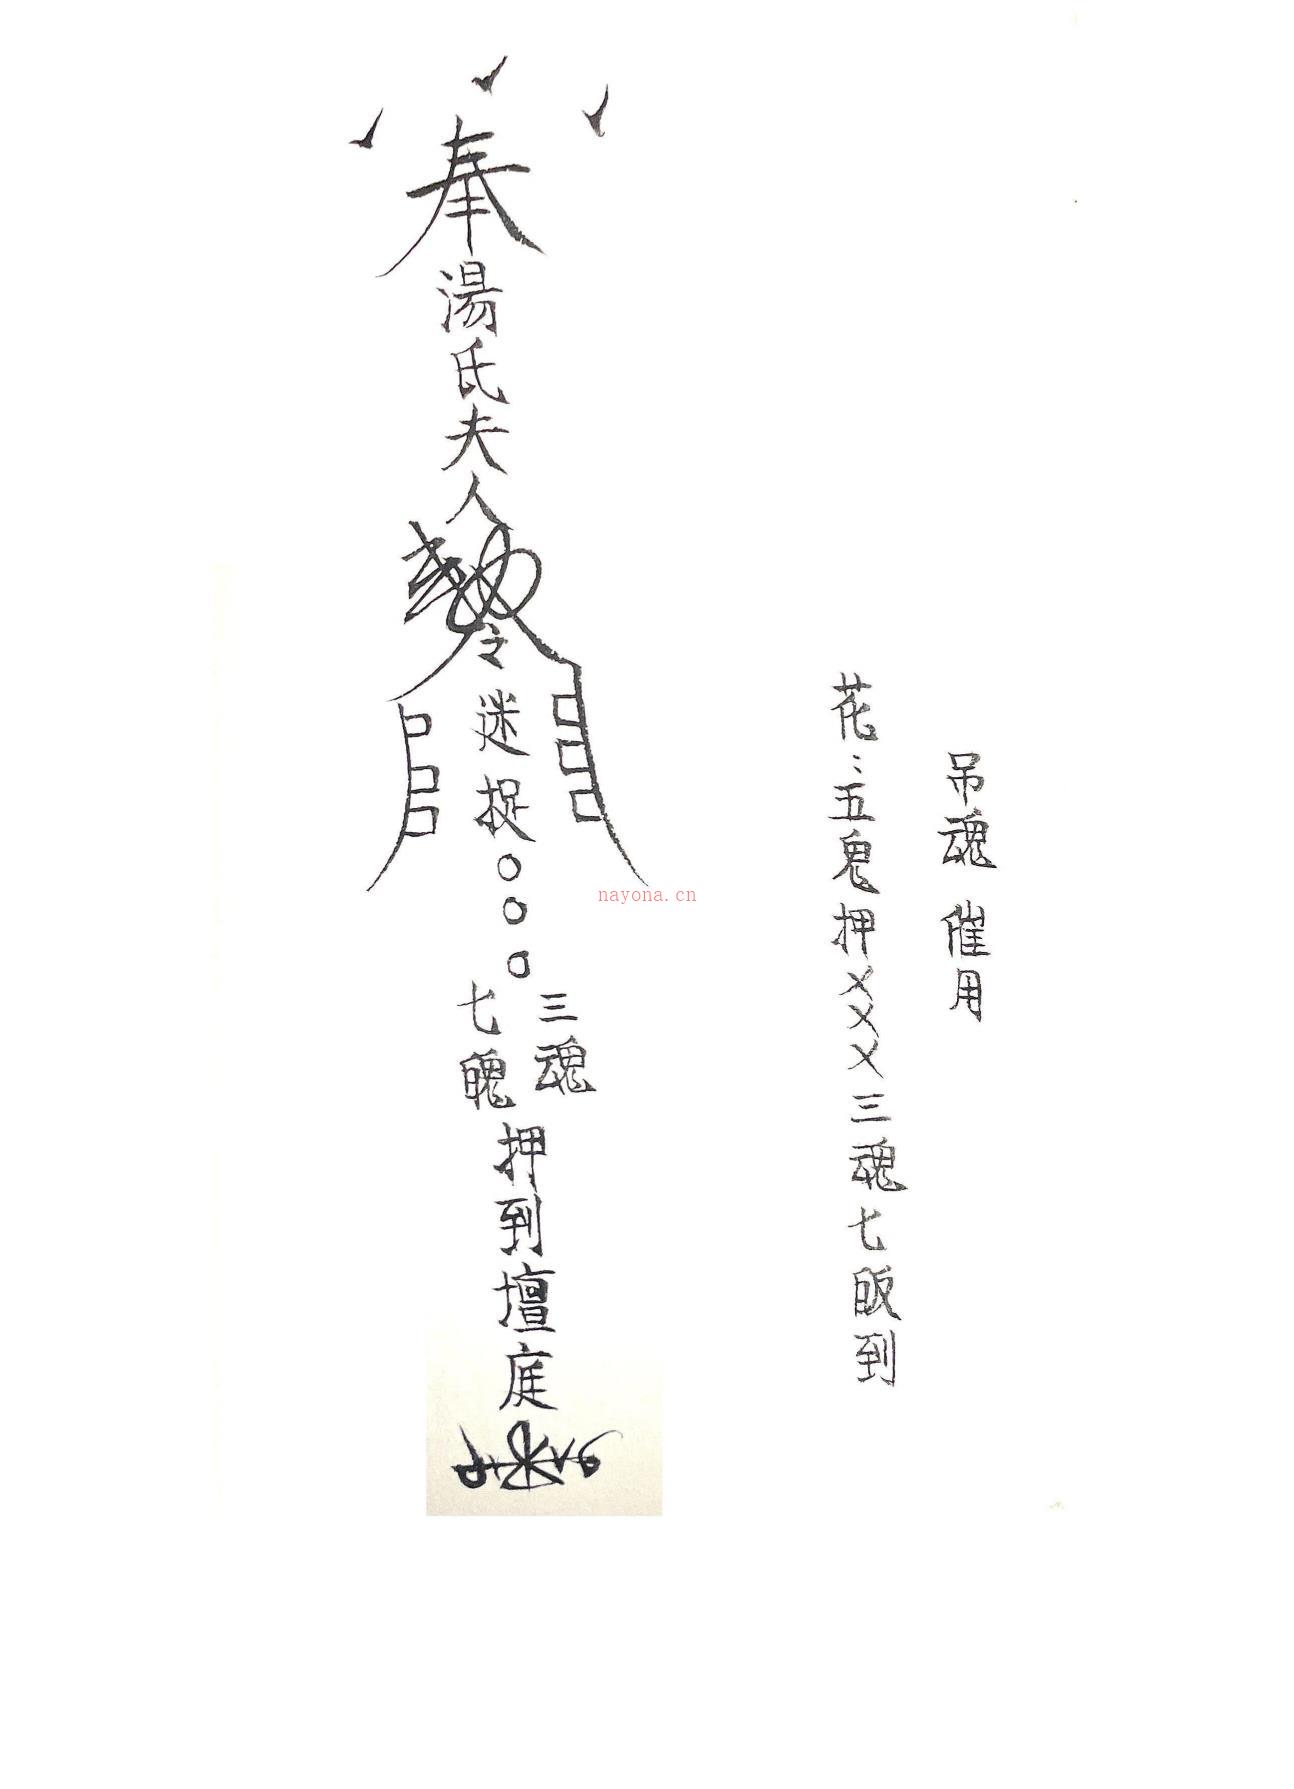 吊魂 催用
花⋮五鬼押XXX三魂七䀟到
奉湯氏夫人
令
迷捉○○○
三魂
七魄
押到壇庭
nayona.cn